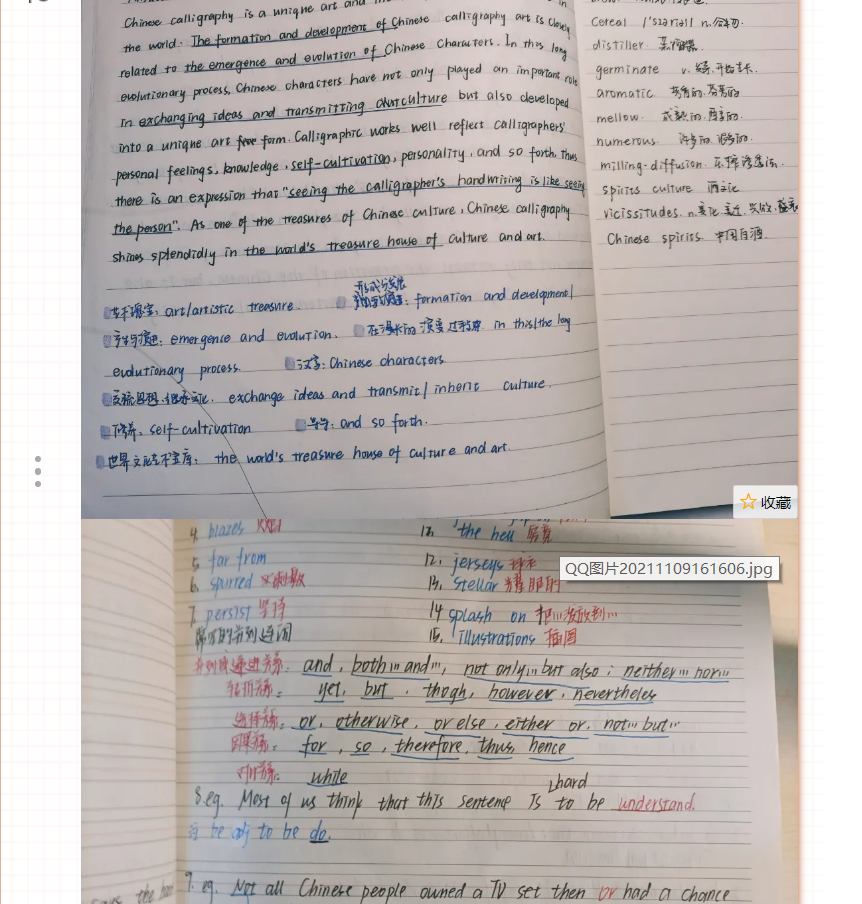 Chinese calligraphy is a unique art and in
the world. The formation and development of Chinese calligraphy art is closely
related to the emergence and evolution of Chinese Characters. In this long
evolutionary process, Chinese characters have not only played an important role
in exchanging ideas and transmitting but also developed
into a unique art form. Calligraphic works well reflect calligraphers'
personal feelings, knowledge, self-cultivation, personality, and so forth, thus
there is an expression that "seeing the calligrapher's handwriting is like seeing
the person". As one of the treasures of Chinese culture, Chinese calligraphy
shines splendidly in the world's treasure house of culture and art.
艺术瑰宝: art/artistic treasure
形成与发展: formation and development/
产生与演进: emergence and evolution. 在漫长的演变过程中 in this/the long
evolutionary process. 汉字: Chinese characters.
交流思想、继承文化. exchange ideas and transmit/inherit culture.
修养, self-cultivation 等等: and so forth.
世界文化艺术宝库: the world's treasure house of culture and art.
Cereal n.谷物.
distiller 蒸馏器.
germinate v. 发芽. 开始生长.
aromatic 芳香的. 芬芳的
mellow. 成熟的. 醇香的.
numerous. 许多的.
milling-diffusion.
spirits culture 酒文化
vicissitudes. n.变化. 变迁.
Chinese spirits. 中国白酒.
收藏
4. blazes 火焰
the hell 究竟
5. far from
12. jerseys
QQ图片20211109161606.jpg
6. spurred
13. Stellar 耀眼的
7. persist 坚持
14 splash on 把…投放到…
常见的并列连词
15. Illustrations 插图
并列或递进关系: and, both … and …, not only … but also; neither … nor …
转折关系: yet, but, thogh, however, nevertheles
选择关系: or, otherwise, or else, either or, not … but …
因果关系: for, so, therefore, thus hence
对比关系: while
hard
8. eg. Most of us think that this sentence is to be understand.
be adj to be do.
9. eg. Not all Chinese people owned a TV set then or had a chance
says the